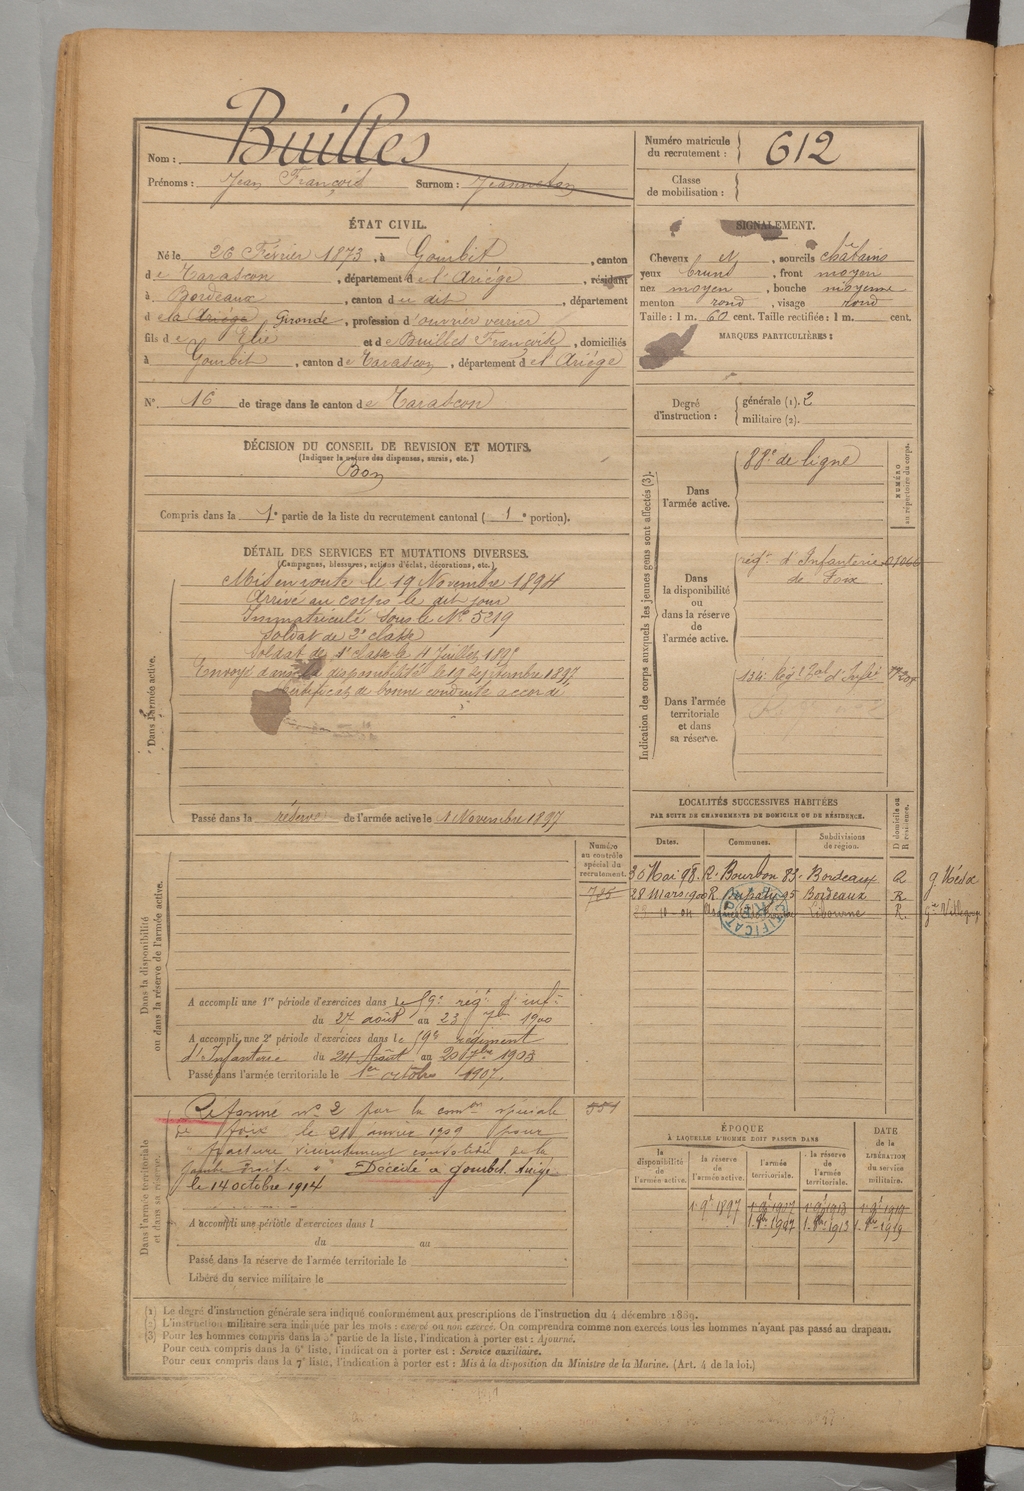 Nom : Builles
Prénoms : Jean François Surnom :
Numéro matricule du recrutement : 612
Classe de mobilisation :
ÉTAT CIVIL.
Né le 26 Février 1873, à Gourbit, canton
de Tarascon, département de l'Ariége, résidant
à Bordeaux, canton du dit, département
d e la Ariége Gironde, profession d'ouvrier verrier
fils de Elie et de Builles Françoise, domiciliés
à Gourbit, canton de Tarascon, département de l'Ariége
N° 16 de tirage dans le canton de Tarascon
SIGNALEMENT.
Cheveux et, sourcils châtains
yeux bruns, front moyen
nez moyen, bouche moyenne
menton rond, visage rond
Taille : 1 m. 60 cent. Taille rectifiée : 1 m. cent.
MARQUES PARTICULIÈRES :
Degré d'instruction : générale (1). 2
militaire (2).
DÉCISION DU CONSEIL DE REVISION ET MOTIFS.
(Indiquer la nature des dispenses, sursis, etc.)
Bon
Compris dans la 1e partie de la liste du recrutement cantonal ( 1e portion).
DÉTAIL DES SERVICES ET MUTATIONS DIVERSES.
(Campagnes, blessures, actions d'éclat, décorations, etc.)
Dans l'armée active.
Mis en route le 19 Novembre 1894
Arrivé au corps le dit jour
Immatriculé sous le N° 5219
Soldat de 2e classe
Soldat de 1e classe le 4 Juillet
Envoyé dans la disponibilité le 19 Septembre 1897
Certificat de bonne conduite accordé
Passé dans la réserve de l'armée active le 1 Novembre 1897
Indication des corps auxquels les jeunes gens sont affectés (3).
NUMÉRO au répertoire du corps.
Dans l'armée active.
88e de ligne
Dans la disponibilité ou dans la réserve de l'armée active.
régt. d'Infanterie
de Foix
Dans l'armée territoriale et dans sa réserve.
134e Régt
LOCALITÉS SUCCESSIVES HABITÉES
PAR SUITE DE CHANGEMENTS DE DOMICILE OU DE RÉSIDENCE.
Dates. Communes. Subdivisions de région. D domicile ou R résidence.
30 Mai 98. R. Bourbon 83. Bordeaux R
28 Mars 1900 R 95 Bordeaux R
10 04 Libourne R.
Dans la disponibilité ou dans la réserve de l'armée active.
Numéro au contrôle spécial du recrutement.
785
A accompli une 1re période d'exercices dans le 59e régt. d'inf
du 27 août au 23 7bre 1900
A accompli une 2e période d'exercices dans le 59e régiment
d'Infanterie du 24 Août au 20 7bre 1903
Passé dans l'armée territoriale le 1er octobre 1907.
Dans l'armée territoriale et dans sa réserve.
Réformé n° 2 par la comon spéciale
de foix le 21 janvier 1909 pour
fracture vicieusement consolidée de la
jambe droite Décédé à Gourbit Ariége
le 14 octobre 1914
A accompli une période d'exercices dans l
du au
Passé dans la réserve de l'armée territoriale le
Libéré du service militaire le
ÉPOQUE
À LAQUELLE L'HOMME DOIT PASSER DANS
DATE de la LIBÉRATION du service militaire.
la disponibilité de l'armée active. la réserve de l'armée active. l'armée territoriale. la réserve de l'armée territoriale.
1 9bre 1897 1 9bre 1907 1 9bre 1913 1 9bre 1919
1. 8bre 1907 1. 8bre 1913 1. 8bre 1919
(1) Le degré d'instruction générale sera indiqué conformément aux prescriptions de l'instruction du 4 décembre 1889.
(2) L'instruction militaire sera indiquée par les mots : exercé ou non exercé. On comprendra comme non exercés tous les hommes n'ayant pas passé au drapeau.
(3) Pour les hommes compris dans la 2e partie de la liste, l'indication à porter est : Ajourné.
Pour ceux compris dans la 6e liste, l'indication à porter est : Service auxiliaire.
Pour ceux compris dans la 7e liste, l'indication à porter est : Mis à la disposition du Ministre de la Marine. (Art. 4 de la loi.)